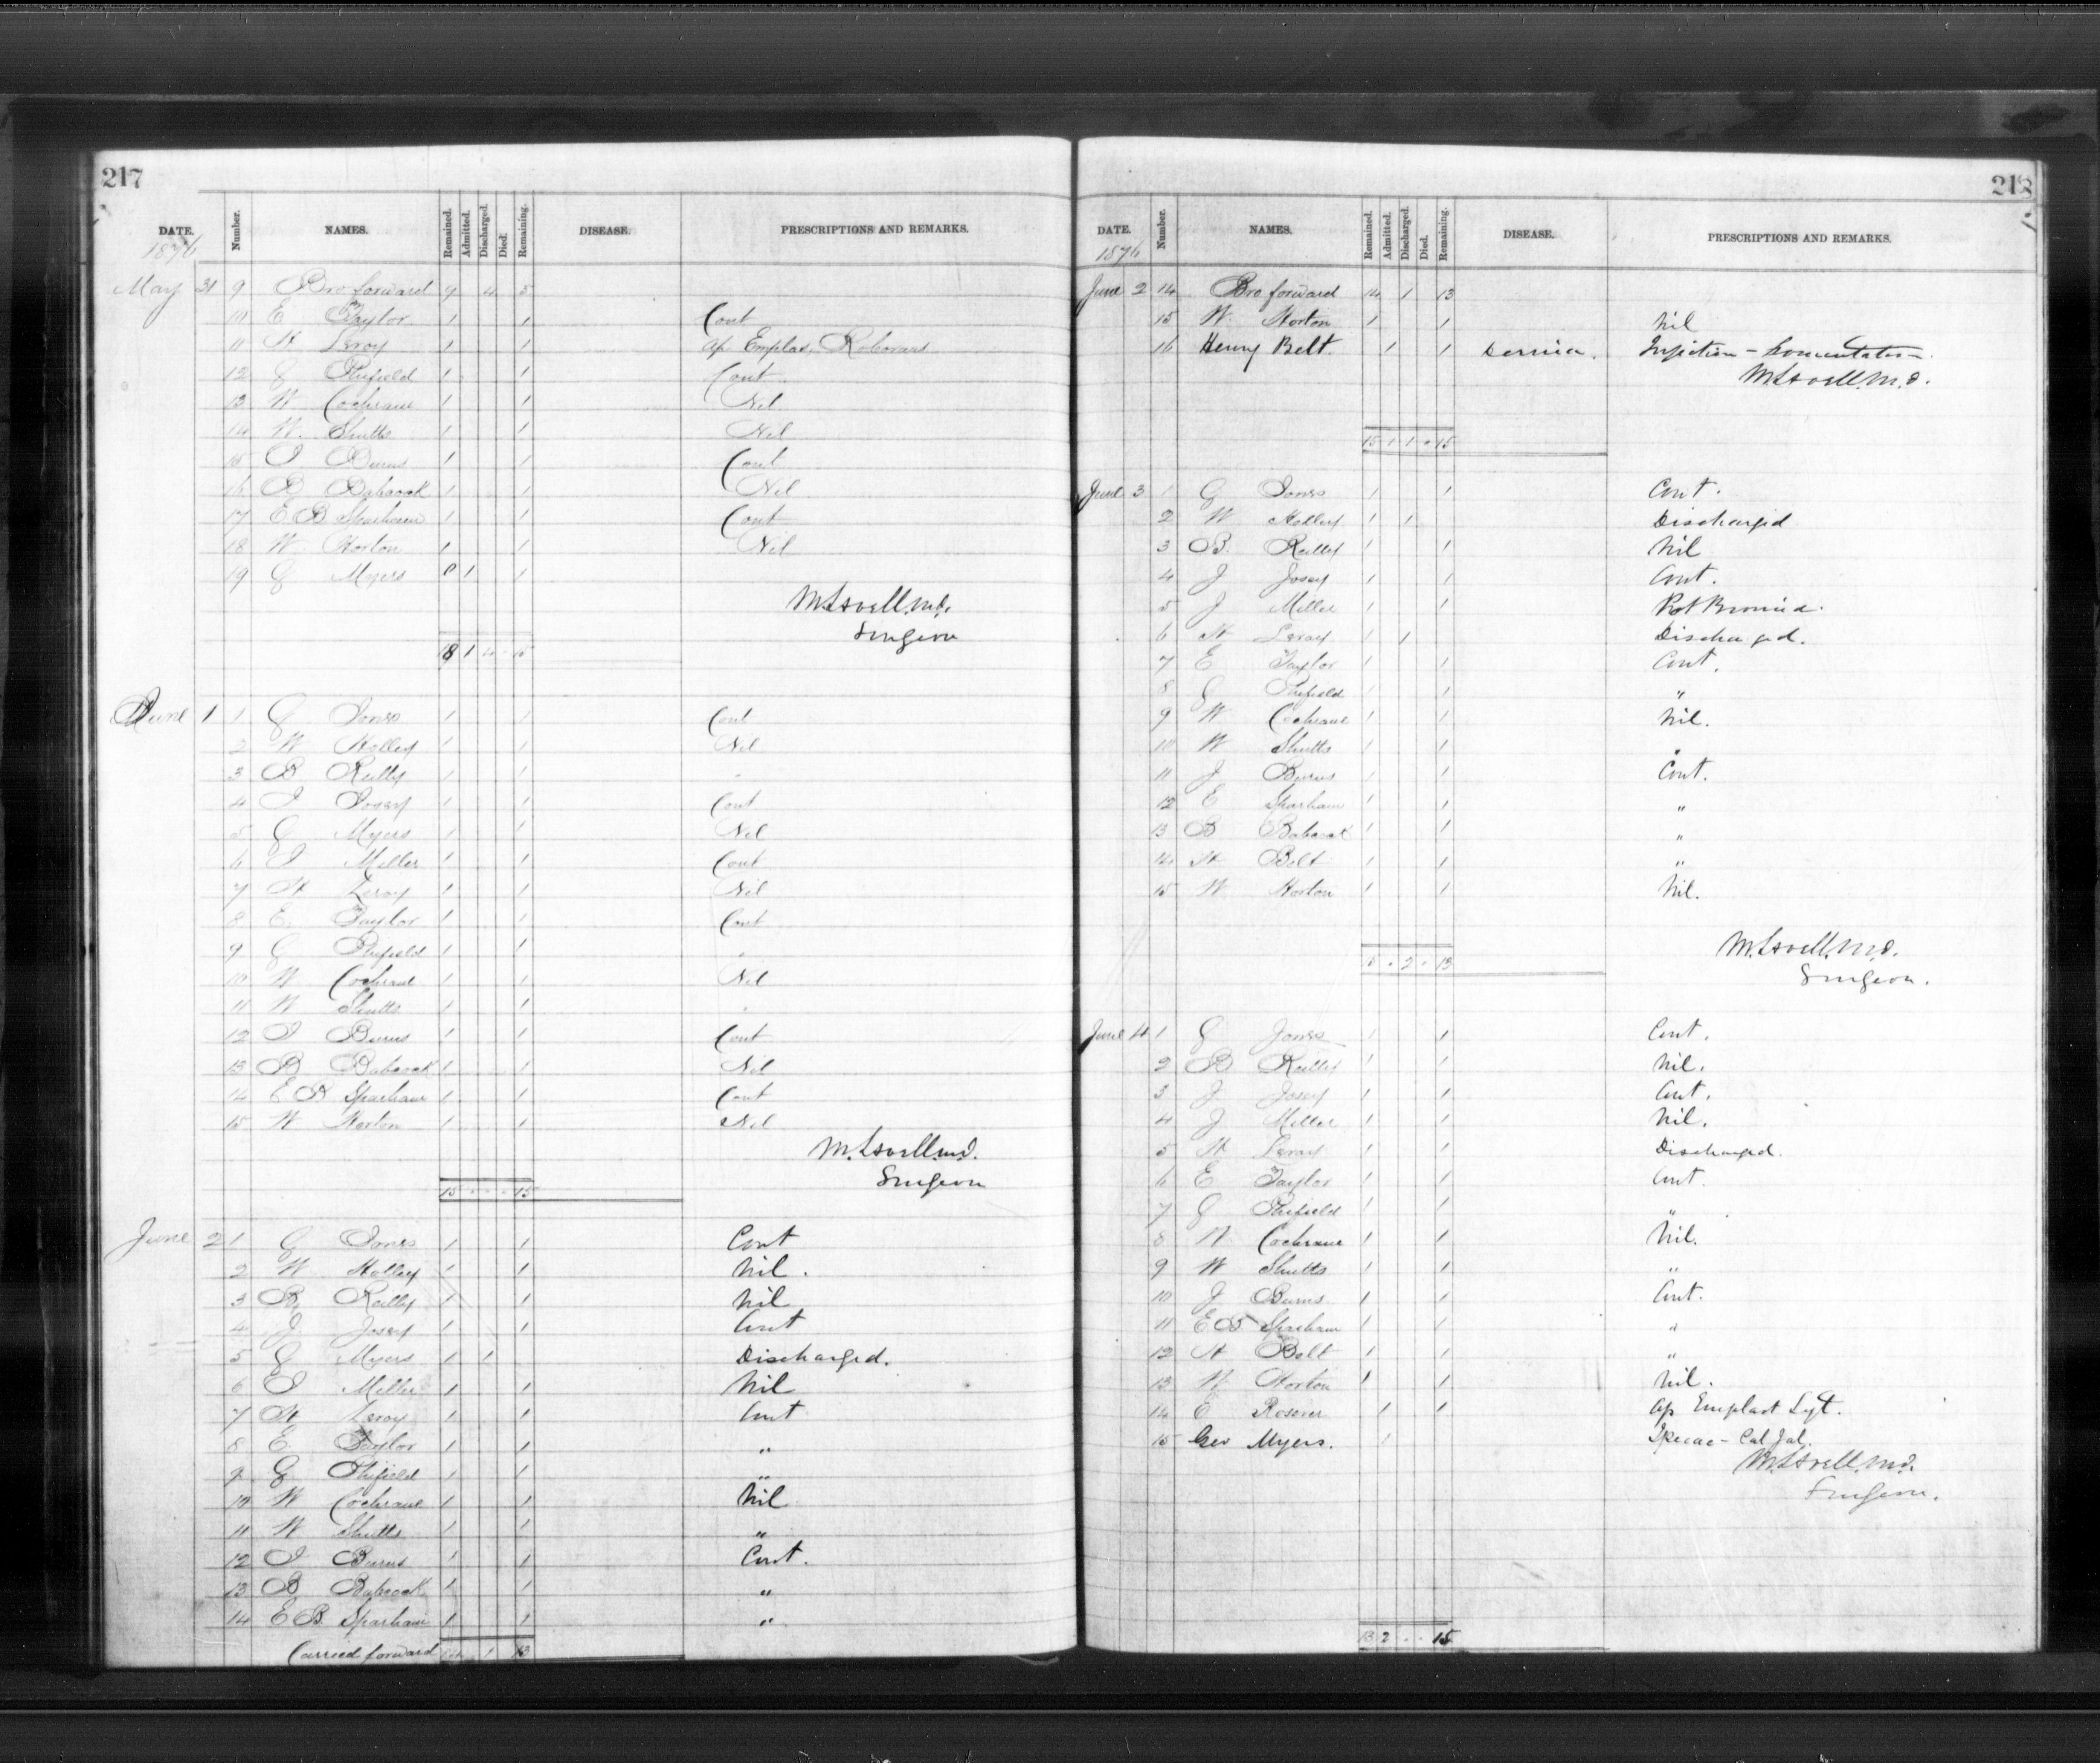 217
DATE. Number. NAMES. Remained. Admitted. Discharged. Died. Remaining. DISEASE. PRESCRIPTIONS AND REMARKS.
1876
May 31 9 Bro forward 9 4 5
10 E Taylor 1 1 Cont
11 H Leroy 1 1 Ap Emplas. Roborans
12 G Phifield 1 1 Cont
13 W Cochrane 1 1 Nil
14 W. Shutts 1 1 Nil
15 J Burns 1 1 Cont
16 B Babcock 1 1 Nil
17 E B Sparham 1 1 Cont
18 W. Horton 1 1 Nil
19 G Myers 0 1 1
M. Lavell. M.D.
Surgeon
18 1 4 - 15
June 1 1 G Jones 1 1 Cont
2 W Holley 1 1 Nil
3 B Reilly 1 1 "
4 J Josey 1 1 Cont
5 G Myers 1 1 Nil
6 J Miller 1 1 Cont
7 H Leroy 1 1 Nil
8 E. Taylor 1 1 Cont
9 G Phifield 1 1 "
10 W Cochrane 1 1 Nil
11 W Shutts 1 1 "
12 J Burns 1 1 Cont
13 B Babcock 1 1 Nil
14 E B Sparham 1 1 Cont
15 W Horton 1 1 Nil
M. Lavell. M.D.
Surgeon
15 - - - 15
June 2 1 G Jones 1 1 Cont
2 W Holley 1 1 Nil.
3 B. Reilly 1 1 Nil
4 J. Josey 1 1 Cont
5 G Myers 1 1 Discharged.
6 J Miller 1 1 Nil
7 H Leroy 1 1 Cont
8 E. Taylor 1 1 "
9 G Phifield 1 1 "
10 W Cochrane 1 1 Nil
11 W Shutts 1 1 "
12 J Burns 1 1 Cont.
13 B Babcock 1 1 "
14 E B. Sparham 1 1 "
Carried forward 14 1 13
218
DATE. Number. NAMES. Remained. Admitted. Discharged. Died. Remaining. DISEASE. PRESCRIPTIONS AND REMARKS.
1876
June 2 14 Bro forward 14 1 13
15 W. Horton 1 1 Nil
16 Henry Belt. 1 1 Injection - Fomentation.
M. Lavell. M.D.
15 1 1 - 15
June 3 1 G Jones 1 1 Cont.
2 W Holley 1 1 Discharged
3 B. Reilly 1 1 Nil
4 J Josey 1 1 Cont.
5 J Miller 1 1 Pot Bromid.
6 H Leroy 1 1 Discharged.
7 E Taylor 1 1 Cont.
8 G Phifield 1 1 "
9 W Cochrane 1 1 Nil.
10 W Shutts 1 1 "
11 J Burns 1 1 Cont.
12 E Sparham 1 1 "
13 B Babcock 1 1 "
14 H Belt 1 1 "
15 W Horton 1 1 Nil.
M. Lavell. M.D.
Surgeon.
15 - 2 - 13
June 4 1 G Jones 1 1 Cont.
2 B Reilly 1 1 Nil.
3 J Josey 1 1 Cont.
4 J Miller 1 1 Nil.
5 H Leroy 1 1 Discharged.
6 E Taylor 1 1 Cont.
7 G Phifield 1 1 "
8 W Cochrane 1 1 Nil.
9 W Shutts 1 1 "
10 J Burns 1 1 Cont.
11 E B Sparham 1 1 "
12 H Belt 1 1 "
13 W Horton 1 1 Nil.
14 E Rosever 1 1 Ap Emplast Lyt.
15 Geo Myers. 1 Ipecac - Cal Jal.
M. Lavell. M.D.
Surgeon.
13 2 - - 15